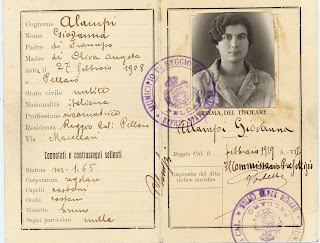 Cognome Alampi
Nome Giovanna
Padre di Francesco
Madre di Oliva Angela
nato il 27 febbraio 1908
a Pellaro
Stato civile nubile
Nazionalità italiana
Professione
Residenza Reggio Cal. Pellaro
Via Macellari
Connotati e contrassegni salienti
Statura m. 1.65
Corporatura regolare
Capelli castani
Occhi castani
Colorito bruno
Segni particolari nulla
MUNICIPIO DI REGGIO
FIRMA DEL TITOLARE
Alampi Giovanna
Reggio Cal. li
febbraio 1929 A. VII
Il Commissario Prefettizio
Impronta del dito
indice sinistro